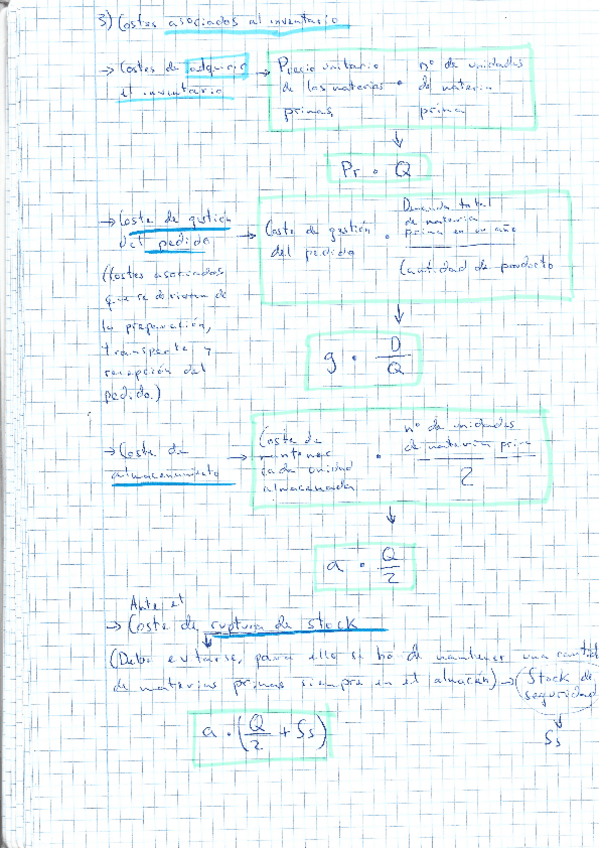 3) Costes asociados al inventario
→ Costes de adquirir el inventario → Precio unitario de las materias primas · nº de unidades de materia prima
↓
Pr · Q
→ Coste de gestión del pedido → Coste de gestión del pedido · Demanda total de materia prima en un año
Cantidad de producto
(Costes asociados que se derivan de la preparación, transporte y recepción del pedido.)
↓
g · D/Q
→ Coste de almacenamiento → Coste de mantener cada unidad almacenada · nº de unidades de materia prima
2
↓
a · Q/2
Ante el
→ Coste de ruptura de stock
↓
(Debe evitarse, para ello se ha de mantener una cantid
de materias primas siempre en el almacén) → (Stock de seguridad
↓
Ss
a · (Q/2 + Ss)